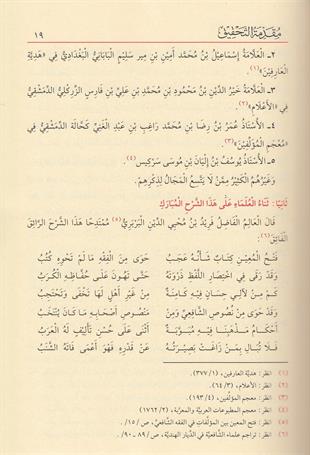 مُقَدِّمَةُ التَّحْقِيقِ
١٩
٢ـ العَلَّامَةُ إِسْمَاعِيلُ بْنُ مُحَمَّد أَمِين بْنِ مِير سَلِيم البَابَانِيُّ البَغْدَادِيُّ فِي «هَدِيَّةِ
العَارِفِينَ»(١).
٣ـ العَلَّامَةُ خَيْرُ الدِّينِ بْنُ مَحْمُودِ بْنِ مُحَمَّدِ بْنِ عَلِيِّ بْنِ فَارِسٍ الزِّرِكْلِيُّ الدِّمَشْقِيُّ
فِي «الأَعْلَامِ»(٢).
٤ـ الأُسْتَاذُ عُمَرُ بْنُ رِضَا بْنِ مُحَمَّد رَاغِب بْنِ عَبْدِ الغَنِيِّ كَحَّالَة الدِّمَشْقِيُّ فِي
«مُعْجَمِ المُؤَلِّفِينَ»(٣).
٥ـ الأُسْتَاذُ يُوسُفُ بْنُ إِلْيَانَ بْنِ مُوسَى سَرْكِيس(٤).
وَغَيْرُهُمُ الكَثِيرُ مِمَّنْ لَا يَتَّسِعُ المَجَالُ لِذِكْرِهِمْ.
ثَانِيًا: ثَنَاءُ العُلَمَاءِ عَلَى هَذَا الشَّرْحِ المُبَارَكِ
قَالَ العَالِمُ الفَاضِلُ فَرِيدُ بْنُ مُحْيِي الدِّينِ البَرْبَرِيُّ(٥) مُمْتَدِحًا هَذَا الشَّرْحَ الرَّائِقَ
الفَائِقَ(٦):
فَتْحُ المُعِينِ كِتَابٌ شَأْنُهُ عَجَبُ حَوَى مِنَ الفِقْهِ مَا لَمْ تَحْوِهِ كُتُبُ
وَقَدْ رَقَى فِي اخْتِصَارِ اللَّفْظِ ذَرْوَتَهُ حَتَّى تَهُونَ عَلَى حُفَّاظِهِ الكُرَبُ
كَمْ مِنْ لَآلِي حِسَانٍ فِيهِ كَامِنَةٌ مِنْ غَيْرِ أَهْلٍ لَهَا تَخْفَى وَتَحْتَجِبُ
وَقَدْ حَوَى مِنْ نُصُوصِ الشَّافِعِيِّ وَمِنْ مَنْصُوصِ أَصْحَابِهِ مَا كَانَ يُنْتَخَبُ
أَحْكَامُ مَذْهَبِنَا فِيهِ مُبَوَّبَةٌ أَثْنَى عَلَى حُسْنِ تَأْلِيفٍ لَهُ العَرَبُ
فَلَا تُبَالِ بِمَنْ زَاغَتْ بَصِيرَتُهُ عَنْ قَدْرِهِ فَهْوَ أَعْمَى فَاتَهُ الشَّنَبُ
(١) انظر: هدية العارفين، (١/٣٧٧).
(٢) انظر: الأعلام، (٣/٦٤).
(٣) انظر: معجم المؤلفين، (٤/١٩٣).
(٤) انظر: معجم المطبوعات العربية والمعربة، (٢/١٧٦٢)
(٥) انظر: فتح المعين بين المؤلفات في الفقه الشافعي، ص/١٥/.
(٦) انظر: تراجم علماء الشافعية في الديار الهندية، ص/٨٩ ـ ٩٠/.